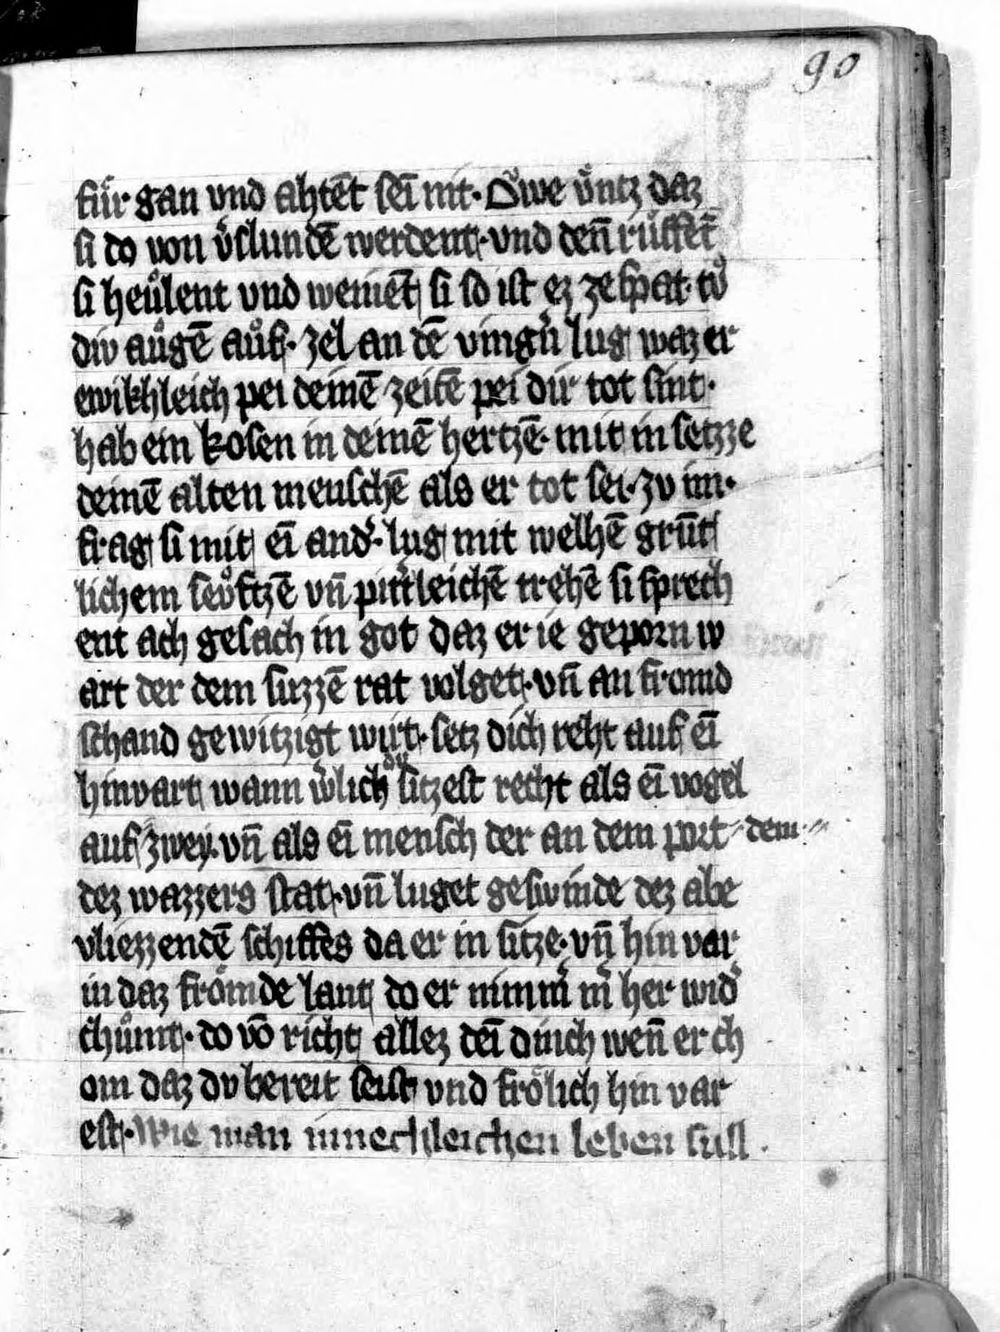 90
für gan vnd ahtēt seī nit· Owe vͦntz daz
si do von vͦslundē werdent· vnd den̄ ruͤffēt
si heuͤlent vnd weinēt si so ist ez ze spat· tuͦ
div auͤgē auͤf· zel an dē vingn̄ lug waz er
ewikhleich pei deinē zeitē pei dir tot sint·
hab ein kosen in deinē hertzē· mit in setzze
deinē alten menschē als er tot sei· zv im·
frag si mit eī and͛· lug mit welhē grūt
lichem seuͤftzē vn̄ pittleichē trehē si sprech
ent ach gesach in got daz er ie geporn w
art der dem suzzē rat volget· vn̄ an fromd
schand gewitzigt wirt· setz dich reht auf eī
hinvart wann w͛lich du sitzest recht als eī vogel
auf zwey· vn̄ als eī mensch der an dem port dem
dez wazzers stat· vn̄ luget geswinde dez abe
vliezzendē schiffes da er in sitze· vn̄ hin var
in daz froͤmde lant do er nimm͛ m͛ her wid͛
chuͤmt· do vō richt allez deī dinch wen̄ er ch
om daz dv bereit seist vnd froͤlich hin var
est· Wie man innechleichen leben sull·